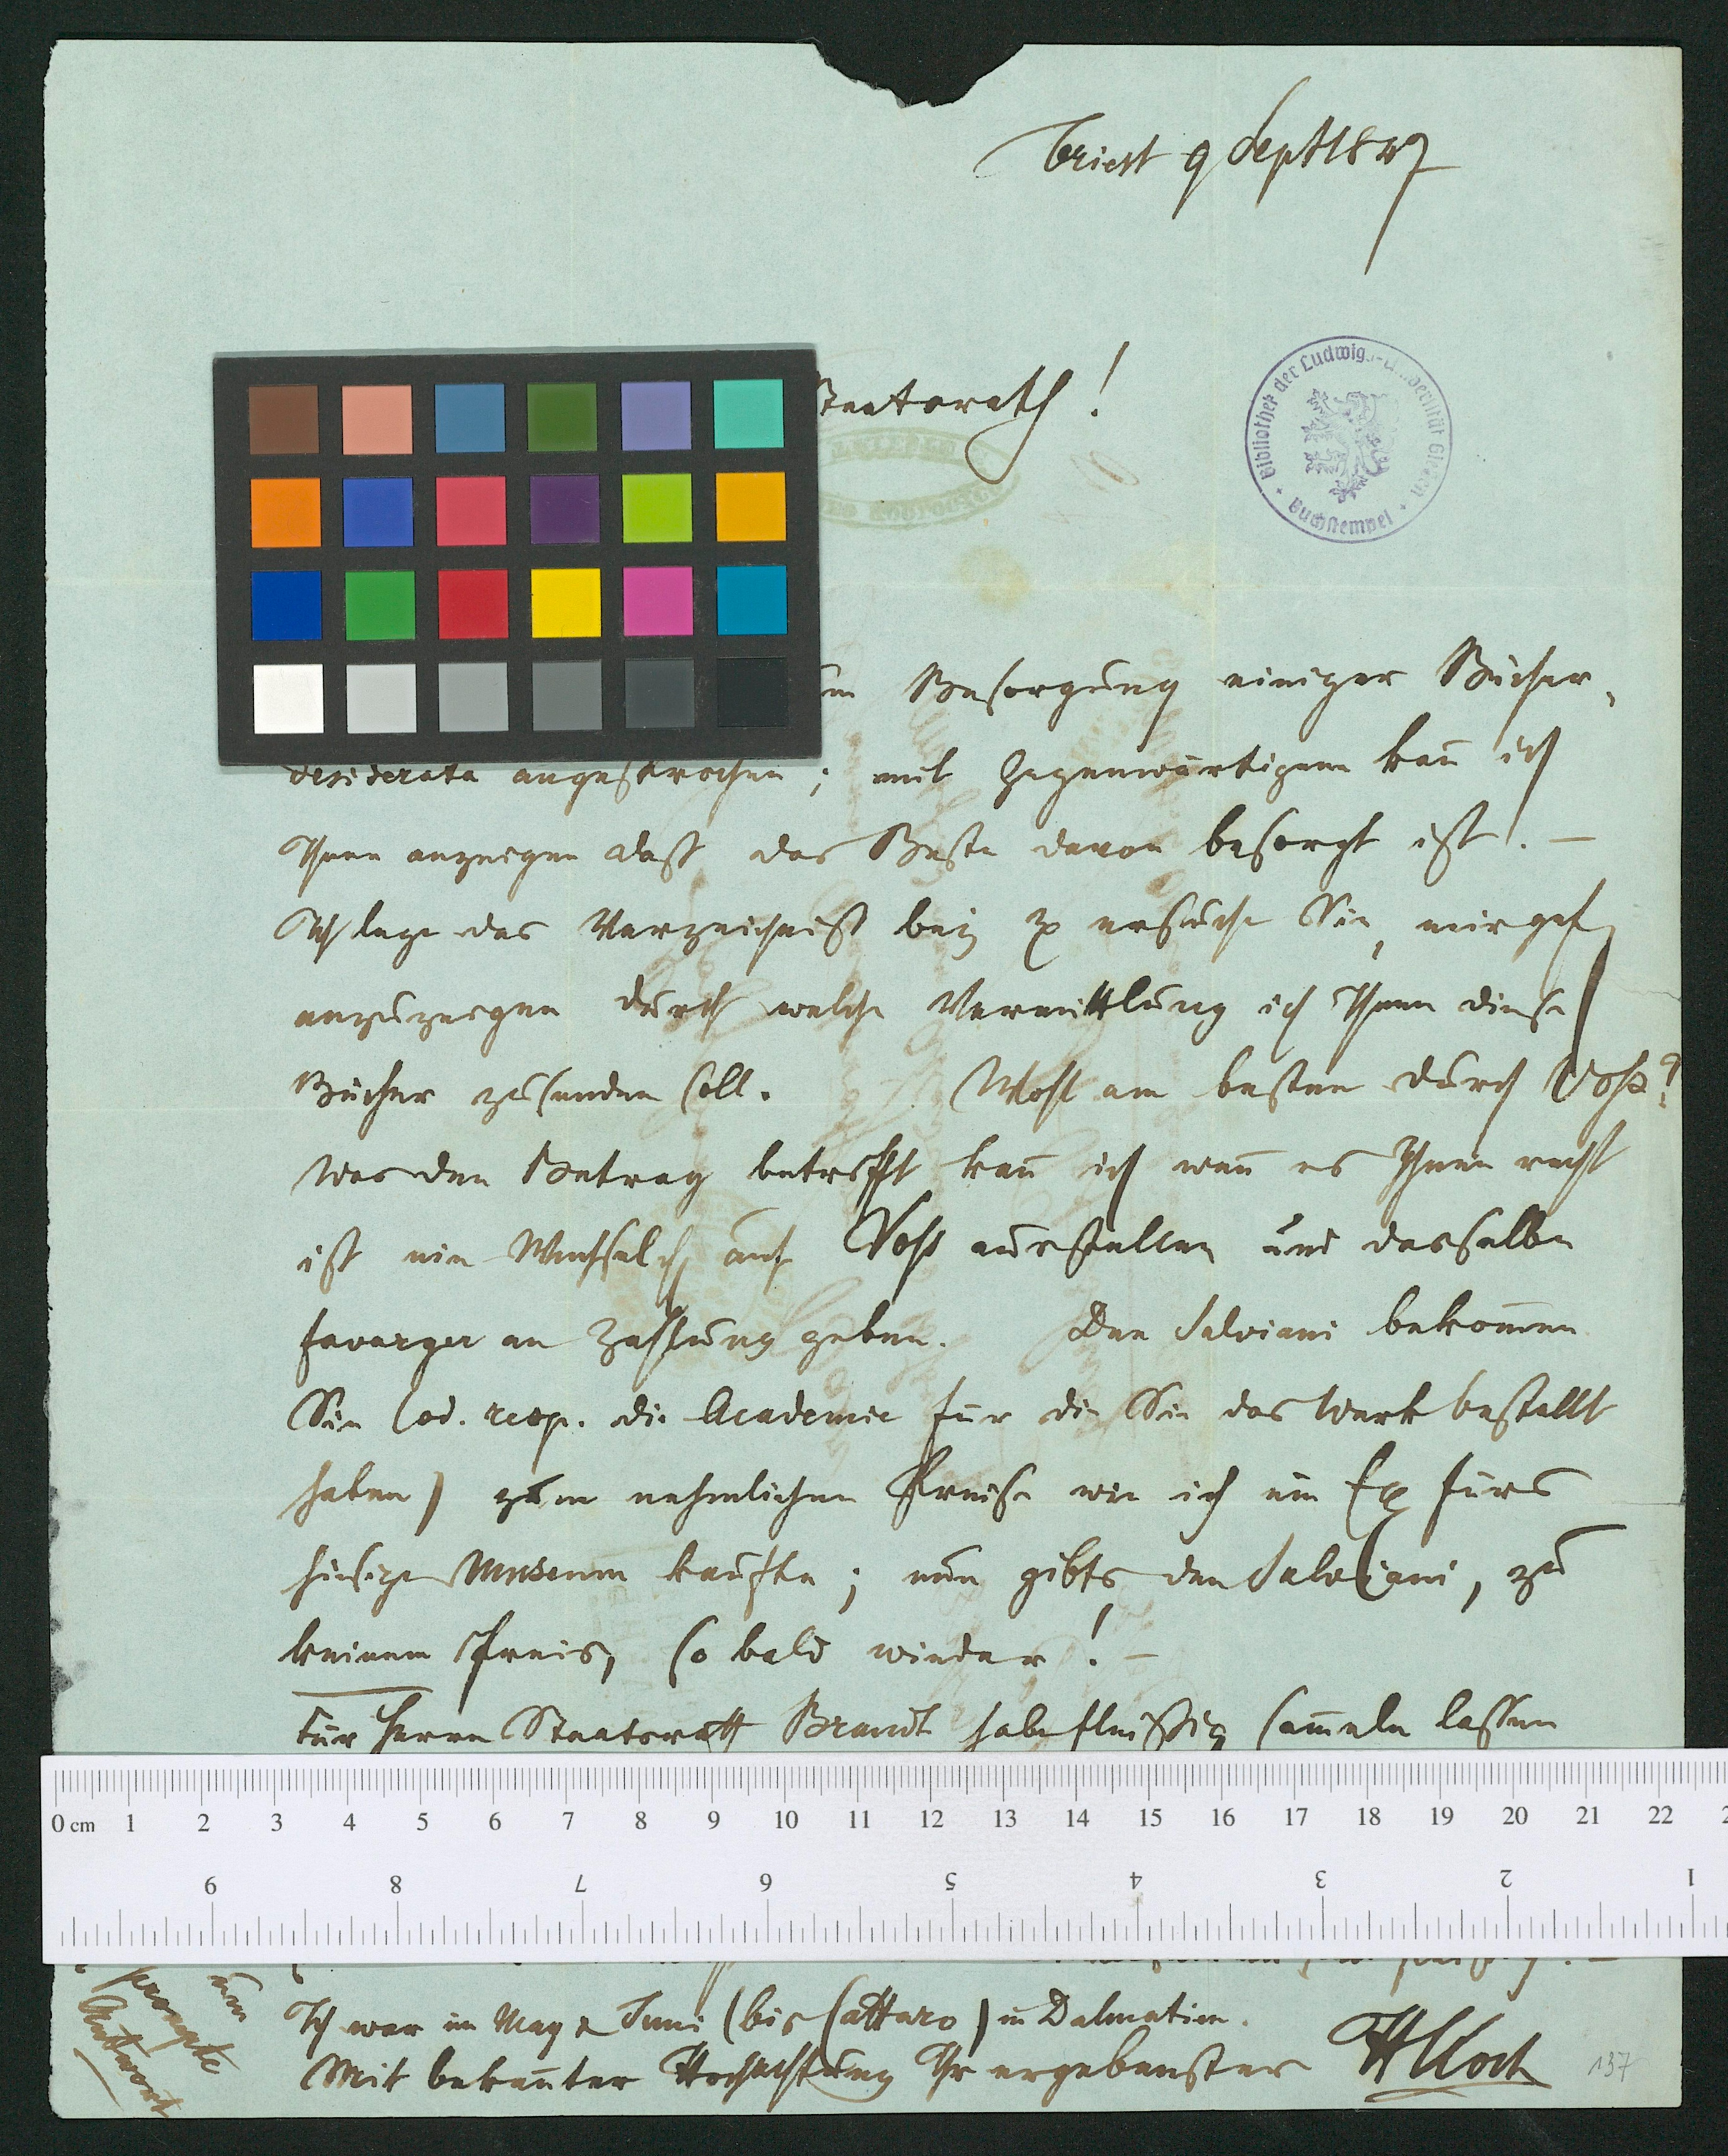 Triest 9 Sept 1847
Staatsrath!
Bibliothek der Ludwigs-Universität Giessen
Buchstempel
um Besorgung einiger Bücher,
desiderata angesprochen; mit Gegenwärtigem kan̄ ich
Ihnen anzeigen daß das Beste davon besorgt ist. —
Ich lege das Verzeichniß bei & ersuche Sie, mir gef
anzuzeigen durch welche Vermittlung ich Ihnen diese
Bücher zusenden soll. Wohl am besten durch Voß?
Was den Betrag betrifft kan̄ ich wen̄ es Ihnen recht
ist ein Wechselch auf Voß ausstellen und dasselbe
Favarger an Zahlung geben. Den Salviani bekom̄en
Sie (od. resp. die Academie für die Sie das Werk bestellt
haben) zum nehmlichen Preise wie ich ein Ex fürs
hiesige Museum kaufte; nun gibts den Salviani, zu
keinem Preis, so bald wieder! —
Für Herrn Staatsrath Brandt habe fleißig sam̄eln lassen
0 cm 1 2 3 4 5 6 7 8 9 10 11 12 13 14 15 16 17 18 19 20 21 22
9 8 7 6 5 4 3 2 1
Ich war im May & Juni (bis Cattaro) in Dalmatien.
Mit bekan̄ter Hochachtung Ihr ergebenster HKoch
137
um
prompte
Antwort